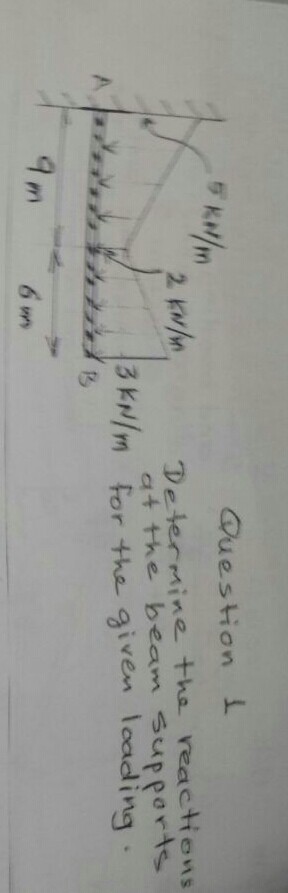 Question 1
Determine the reactions
at the beam supports
for the given loading.
5 KN/m
2 KN/m
3 KN/m
A
B
9 m
6 m